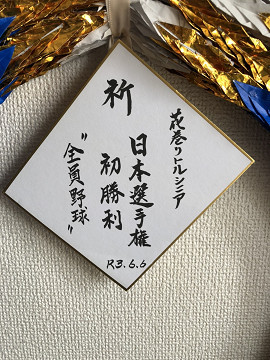 花巻リトルシニア
祈
日本選手権
初勝利
"全員野球"
R3.6.6